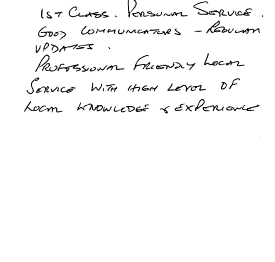 1ST CLASS. PERSONAL SERVICE.
GOOD COMMUNICATORS - REGULAR
UPDATES.
PROFESSIONAL FRIENDLY LOCAL
SERVICE WITH HIGH LEVEL OF
LOCAL KNOWLEDGE & EXPERIENCE